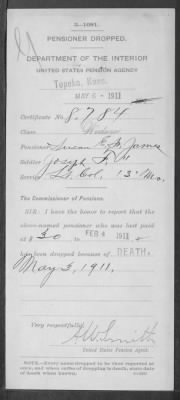 3-1081.
PENSIONER DROPPED.
DEPARTMENT OF THE INTERIOR
UNITED STATES PENSION AGENCY
Topeka, Kans.
MAY 6 - 1911
Certificate No. 8,784
Class Widow
Pensioner Susan E. M. James
Soldier Joseph
Service Lt. Col. 13" Mo.
The Commissioner of Pensions.
SIR: I have the honor to report that the
above-named pensioner who was last paid
at $ 30 to FEB 4 1911
has been dropped because of DEATH,
May 3, 1911.
Very respectfully,
United States Pension Agent.
NOTE.—Every name dropped to be thus reported at
once, and when cause of dropping is death, state date
of death when known.